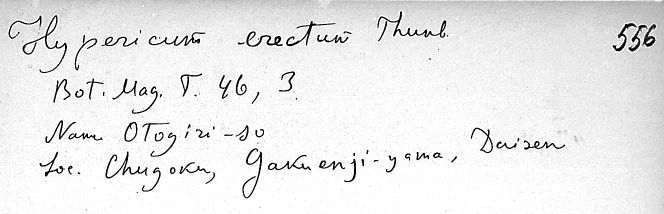 Hypericum erectum Thunb. 556
Bot. Mag. T. 46, 3.
Nam. Otogiri-so
Loc. Chugoku, Gakuenji-yama, Daisen